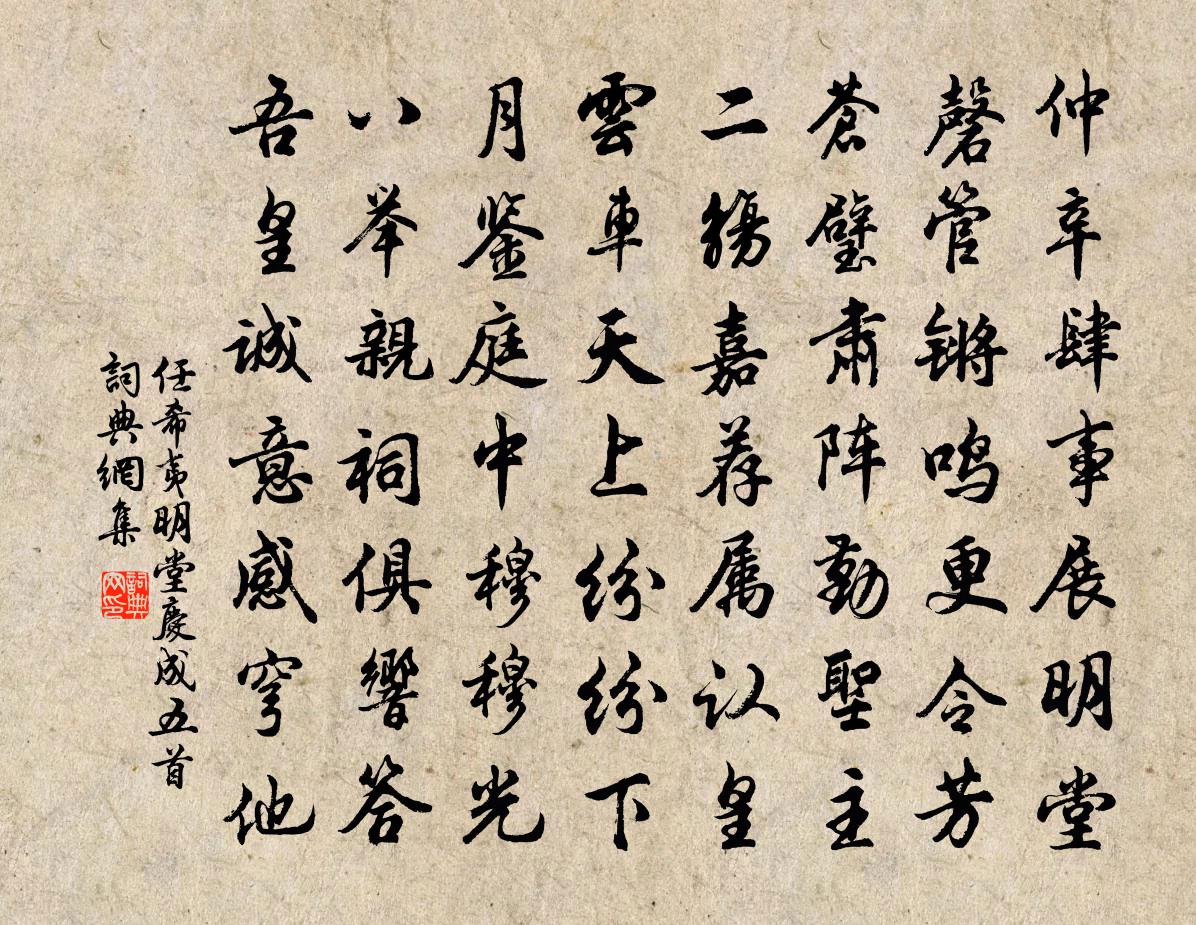 仲辛肆事展明堂
磬管锵鸣更令芳
蒼璧肃阵勤聖主
二觞嘉荐属认皇
雲車天上纷纷下
月鉴庭中穆穆光
八举親祠俱響答
吾皇诚意感穹他
任希夷明堂慶成五首
詞典網集
詞典
网印